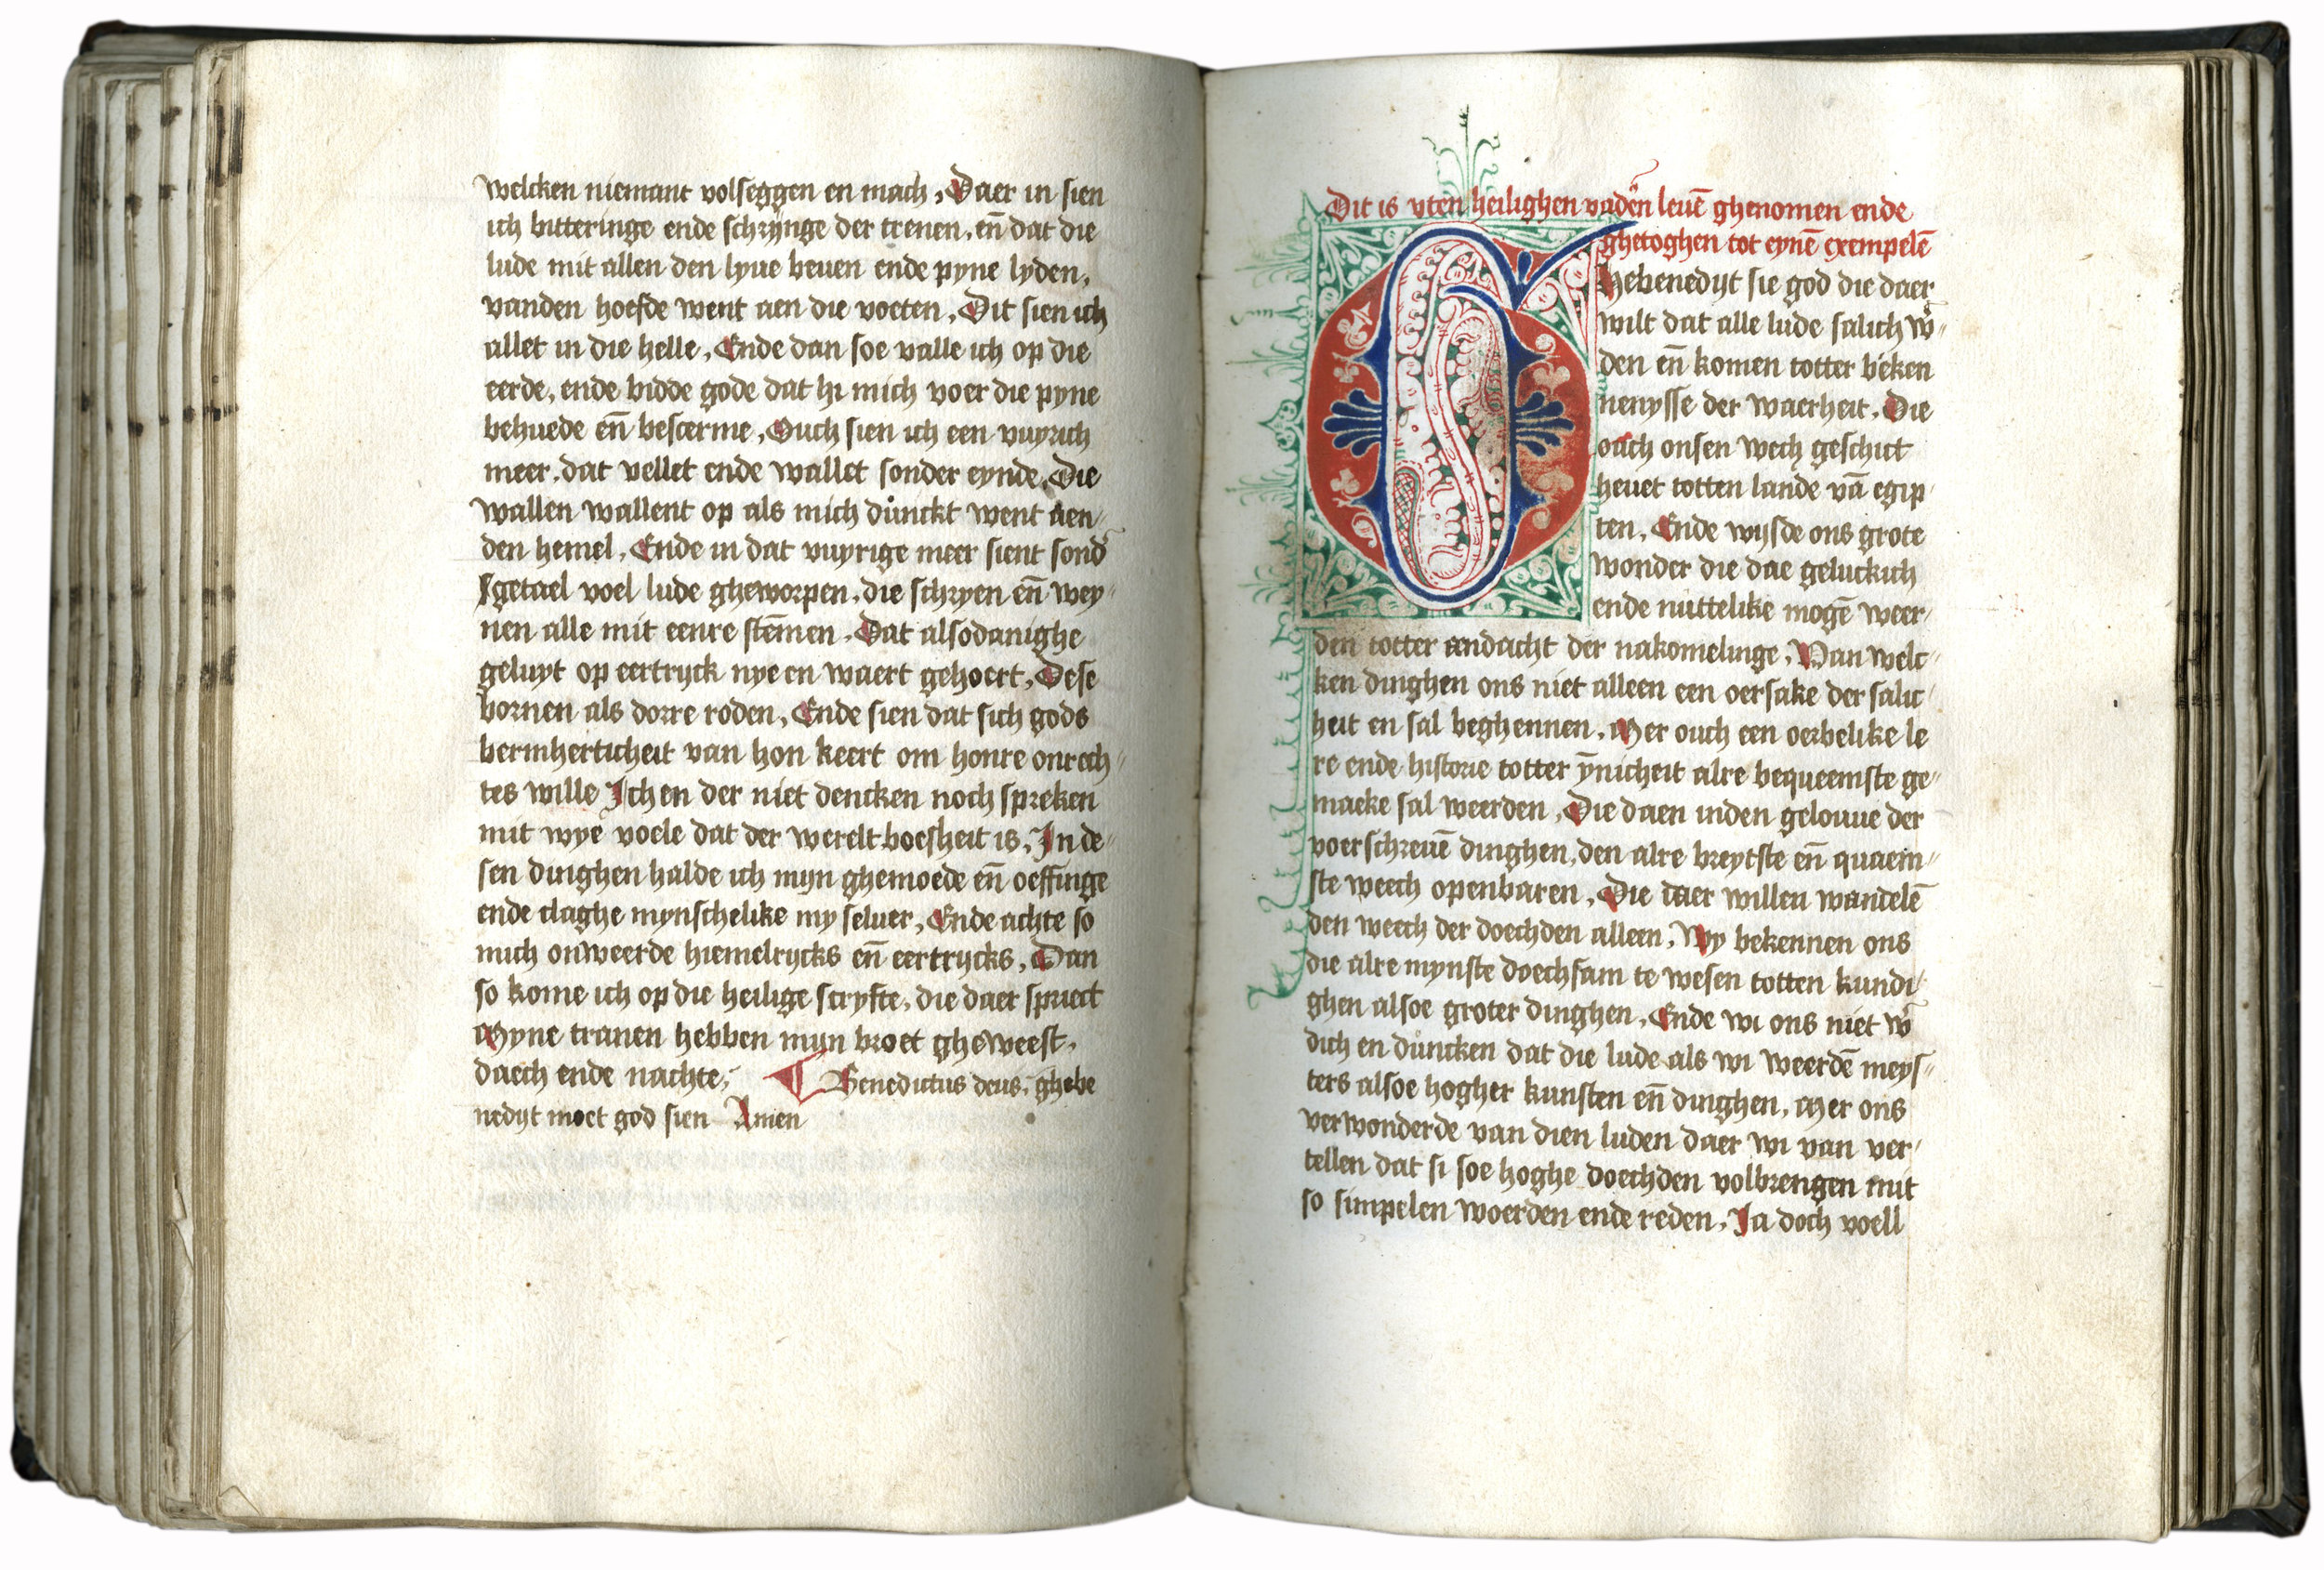 welcken niemant volseggen en mach, Daer in sien
ich bitteringe ende schrijnge der trenen, en̄ dat die
lude mit allen den lyue beuen ende pyne lyden,
vanden hoefde went aen die voeten, Dit sien ich
allet in die helle, Ende dan soe valle ich op die
eerde, ende bidde gode dat hi mich voer die pyne
behuede en̄ bescerme, Ouch sien ich een vuyrich
meer, dat vellet ende wallet sonder eynde, Die
wallen wallent op als mich důnckt went aen⸗
den hemel, Ende in dat vuyrige meer sient sond̕
getael voel lude gheworpen, die schryen en̄ wey⸗
nen alle mit eenre stēmen, Dat alsodanighe
geluyt op eertryck nye en waert gehoert, Dese
bornen als dorre roden, Ende sien dat sich gods
bermherticheit van hon keert om honre onrech⸗
tes wille Ich en der niet dencken noch spreken
mit wye voele dat der werelt boesheit is, In de⸗
sen dinghen halde ich myn ghemoede en̄ oeffinge
ende claghe mynschelike my seluer, Ende achte so
mich onweerde hiemelrycks en̄ eertrycks, Dan
so kome ich op die heilige scryfte, die daer spriect
Myne tranen hebben myn broet gheweest,
daech ende nachte, Benedictus deus, ghebe
nedyt moet god sien Amen
Dit is vten heilighen vad̕en leuē ghenomen ende
ghetoghen tot eynē exempelē
Ghebenedyt sie god die daer
wilt dat alle lude salich w̕⸗
den en̄ komen totter beken
nenysse der waerheit, Die
ouch onsen wech geschict
heuet totten lande vā egip⸗
ten, Ende wysde ons grote
wonder die dae geluckich
ende nuttelike mogē weer⸗
den totter aendacht der nakomelinge, Van welc⸗
ken dinghen ons niet alleen een oersake der salic⸗
heit en sal beghennen, Mer ouch een oerbelike le
re ende historie totter ynicheit alre bequeemste ge⸗
maeke sal weerden, Die daen inden gelouue der
voerschreuē dinghen, den alre breytste en̄ quaem⸗
ste weech openbaren, Die daer willen wandelē
den weech der doechden alleen, Wy bekennen ons
die alre mynste doechsam te wesen totten kundi⸗
ghen alsoe groter dinghen, Ende wi ons niet w̕
dich en důncken dat die lude als wi weerdē meys⸗
ters alsoe hogher kunsten en̄ dinghen, Mer ons
verwonderde van dien luden daer wi van ver⸗
tellen dat si soe hoghe doechden volbrengen mit
so simpelen woerden ende reden, Ja doch voell